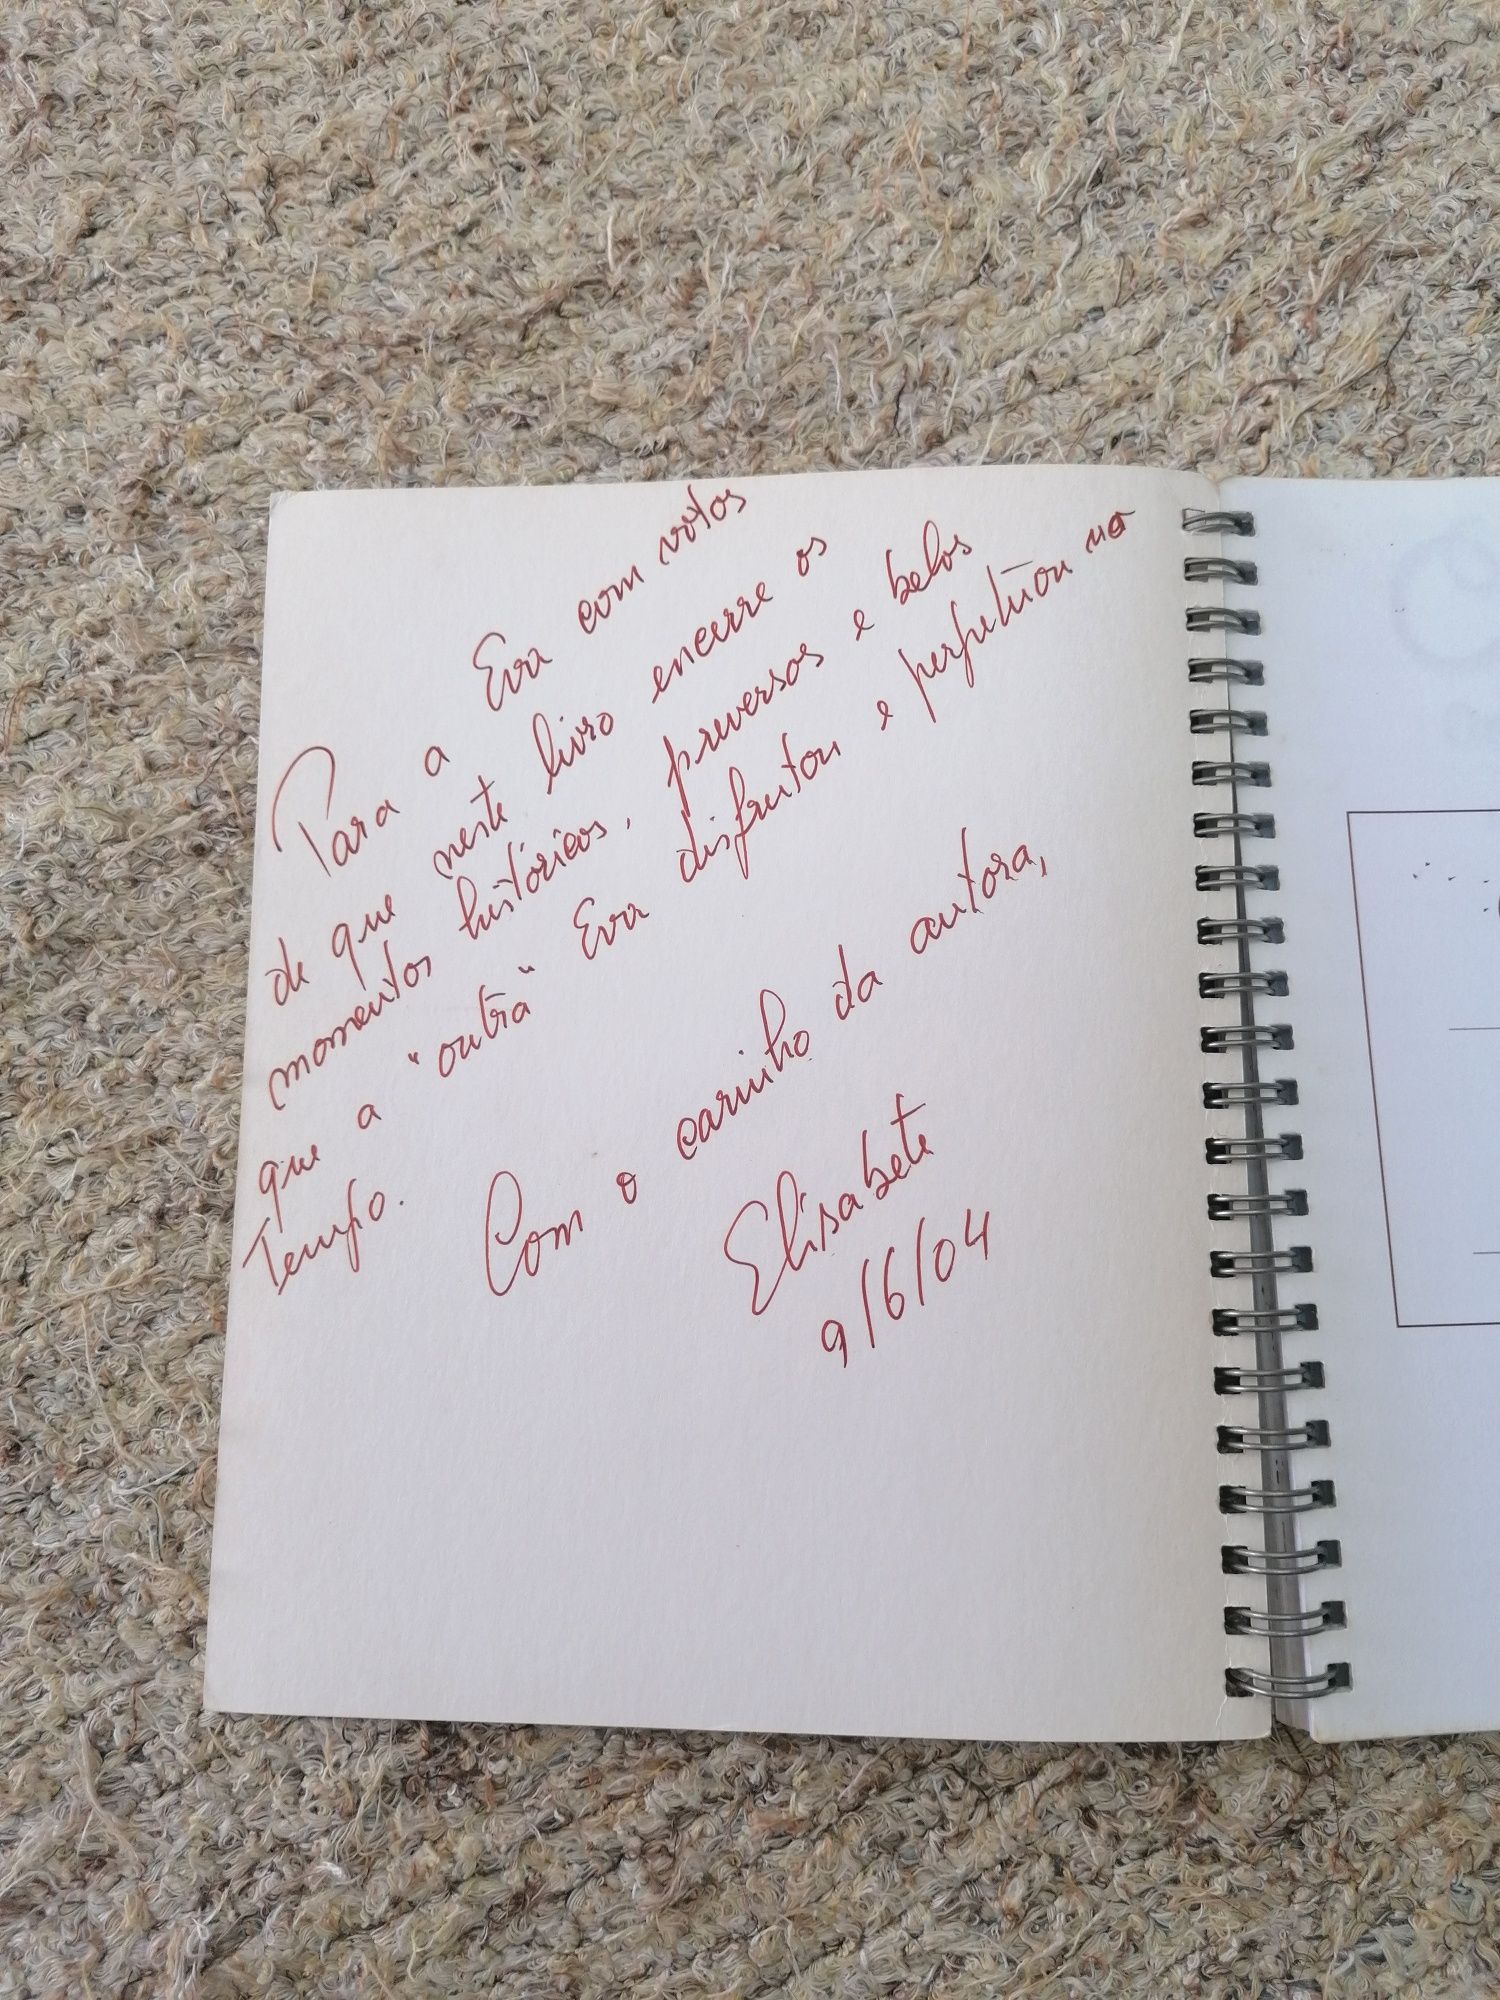 Para a Eva com votos
de que neste livro encerre os
momentos históricos, preversos e belos
que a "outra" Eva disfrutou e perpetuou no
Tempo.
Com o carinho da autora,
Elisabete
9/6/04